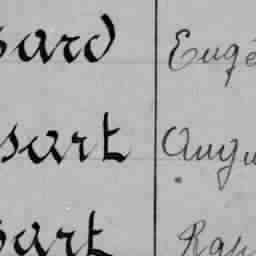 sard Eugè
sart Augu
sart Rap